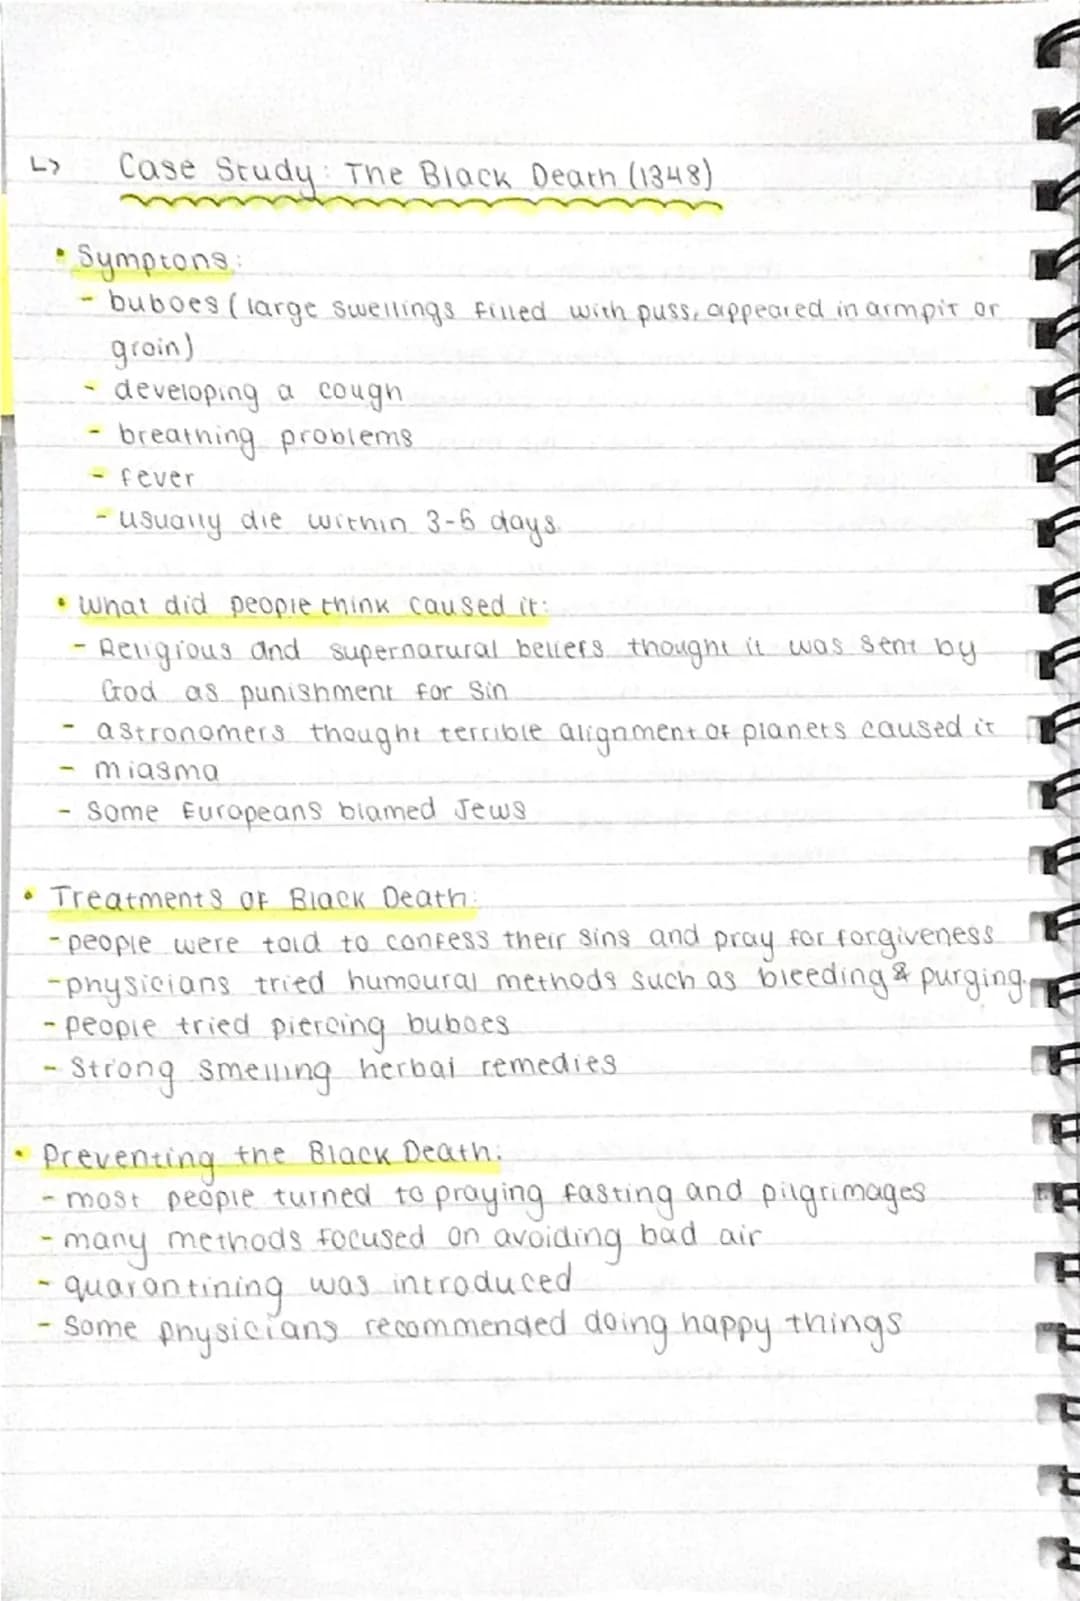 ↳ Case Study: The Black Death (1348)
• Symptons:
- buboes (large swellings filled with puss, appeared in armpit or
groin)
- developing a cough
- breathing problems
- fever
- usually die within 3-6 days.
• What did people think caused it:
- Religious and supernatural beliefs thought it was sent by
God as punishment for sin
- astronomers thought terrible alignment of planets caused it
- miasma
- Some Europeans blamed Jews
• Treatments of Black Death:
- people were told to confess their sins and pray for forgiveness
- physicians tried humoural methods such as bleeding & purging.
- people tried piercing buboes
- Strong smelling herbal remedies
• Preventing the Black Death:
- most people turned to praying fasting and pilgrimages
- many methods focused on avoiding bad air
- quarantining was introduced
- Some physicians recommended doing happy things